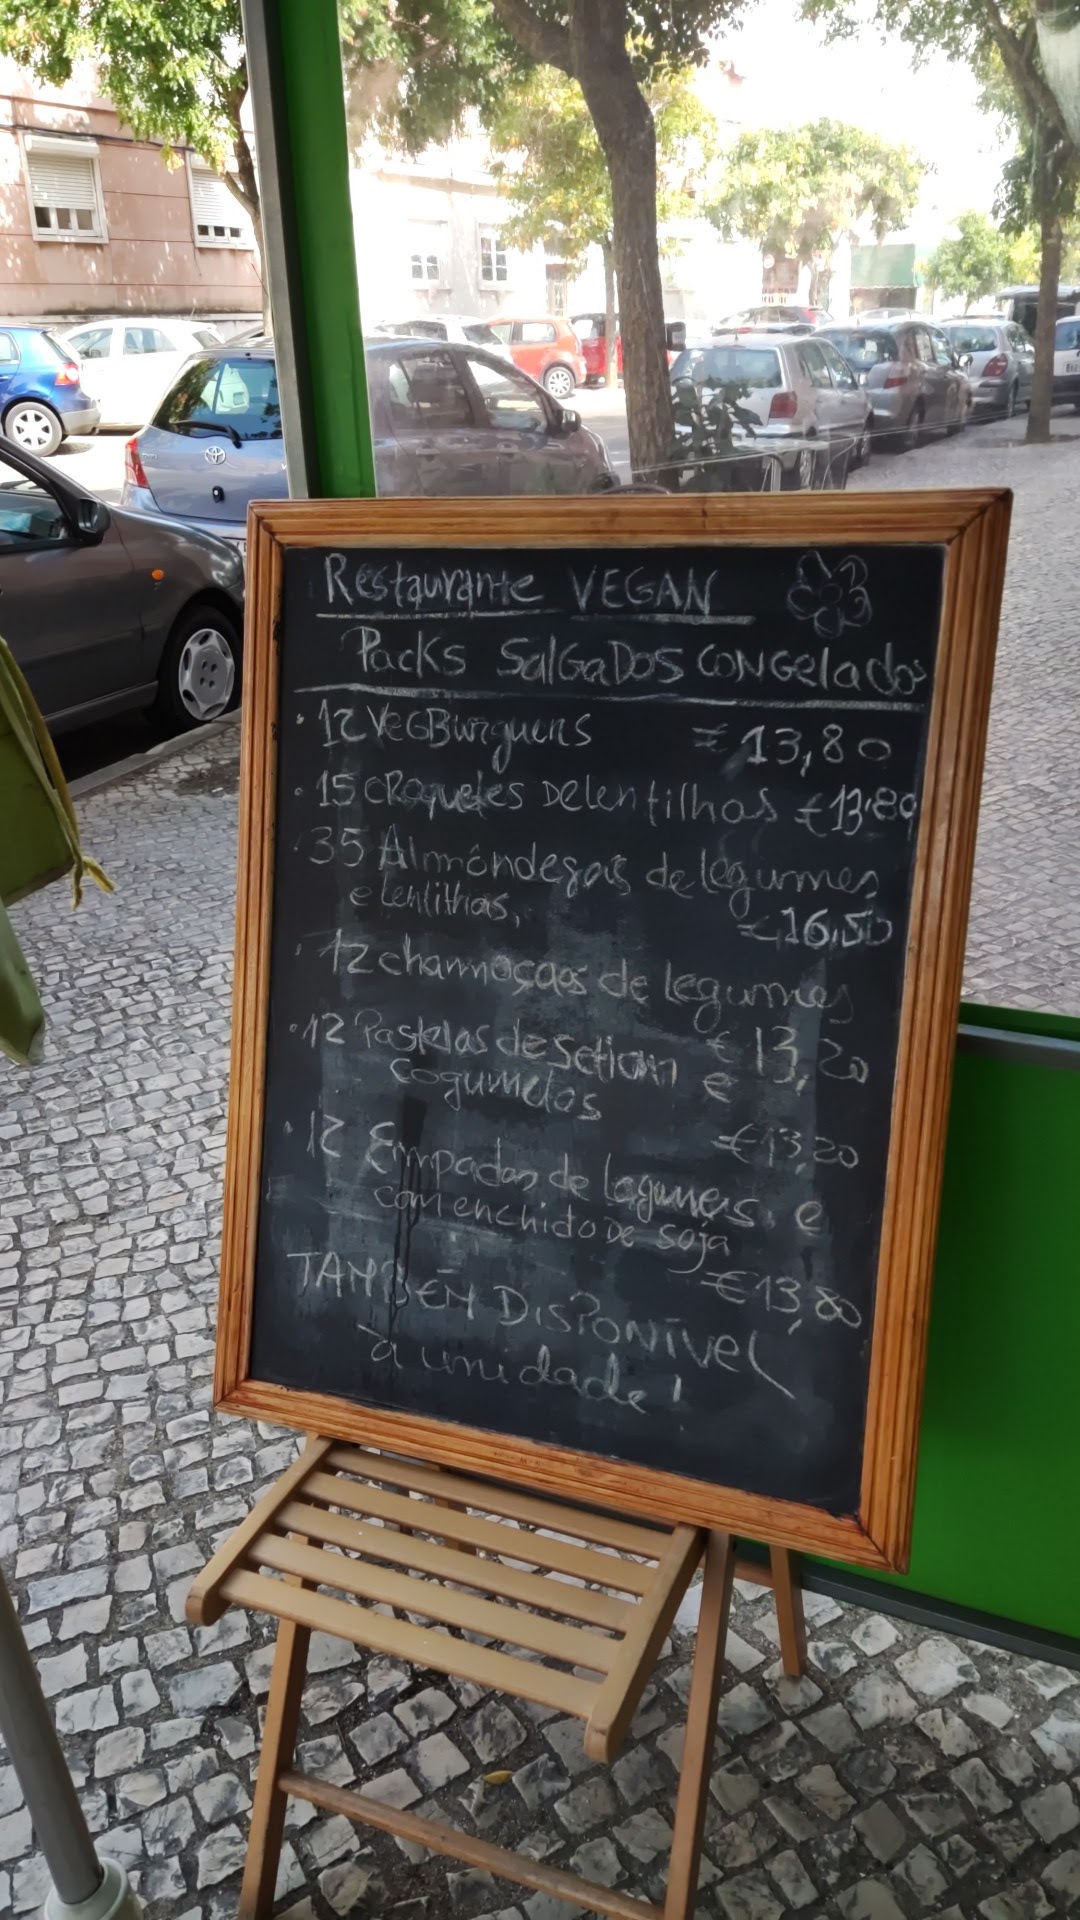 Restaurante VEGAN
Packs SalGaDos CONGelados
· 12 VegBurguers € 13,80
· 15 cRoquetes De lentilhas € 13,80
· 35 Almôndegas de legumes
e lentilhas, € 16,50
· 12 chamuças de legumes
€ 13,20
· 12 Pasteles de seitan e
cogumelos
€ 13,20
· 12 Empadas de legumes e
com enchido De soja
€ 13,80
TAMBÉM DISPONÍVEL
à unidade!